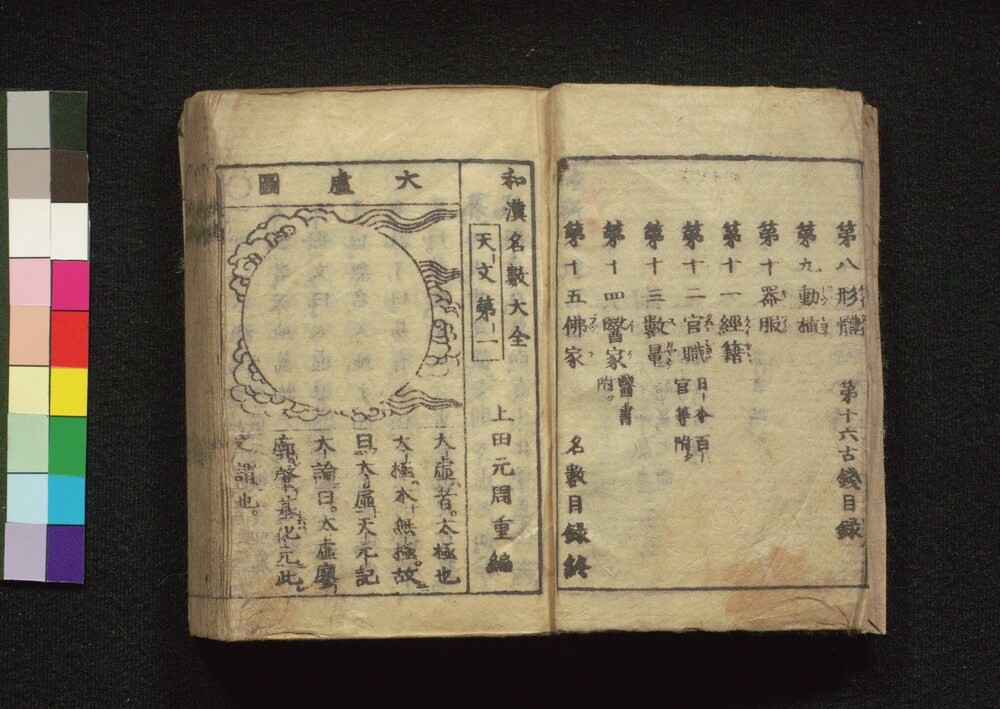 第八形體
第九動植
第十器服
第十一經籍
第十二官職 日本百官等附
第十三數量
第十四醫家 醫書附
第十五佛家
第十六古錢目録
名數目録終
和漢名數大全
天文第一
上田元周重編
大虚圖
大虚者。太極也
太極本無極故
曰太虚天元記
大論曰。太虚廖
廓肇基化元此
之謂也。